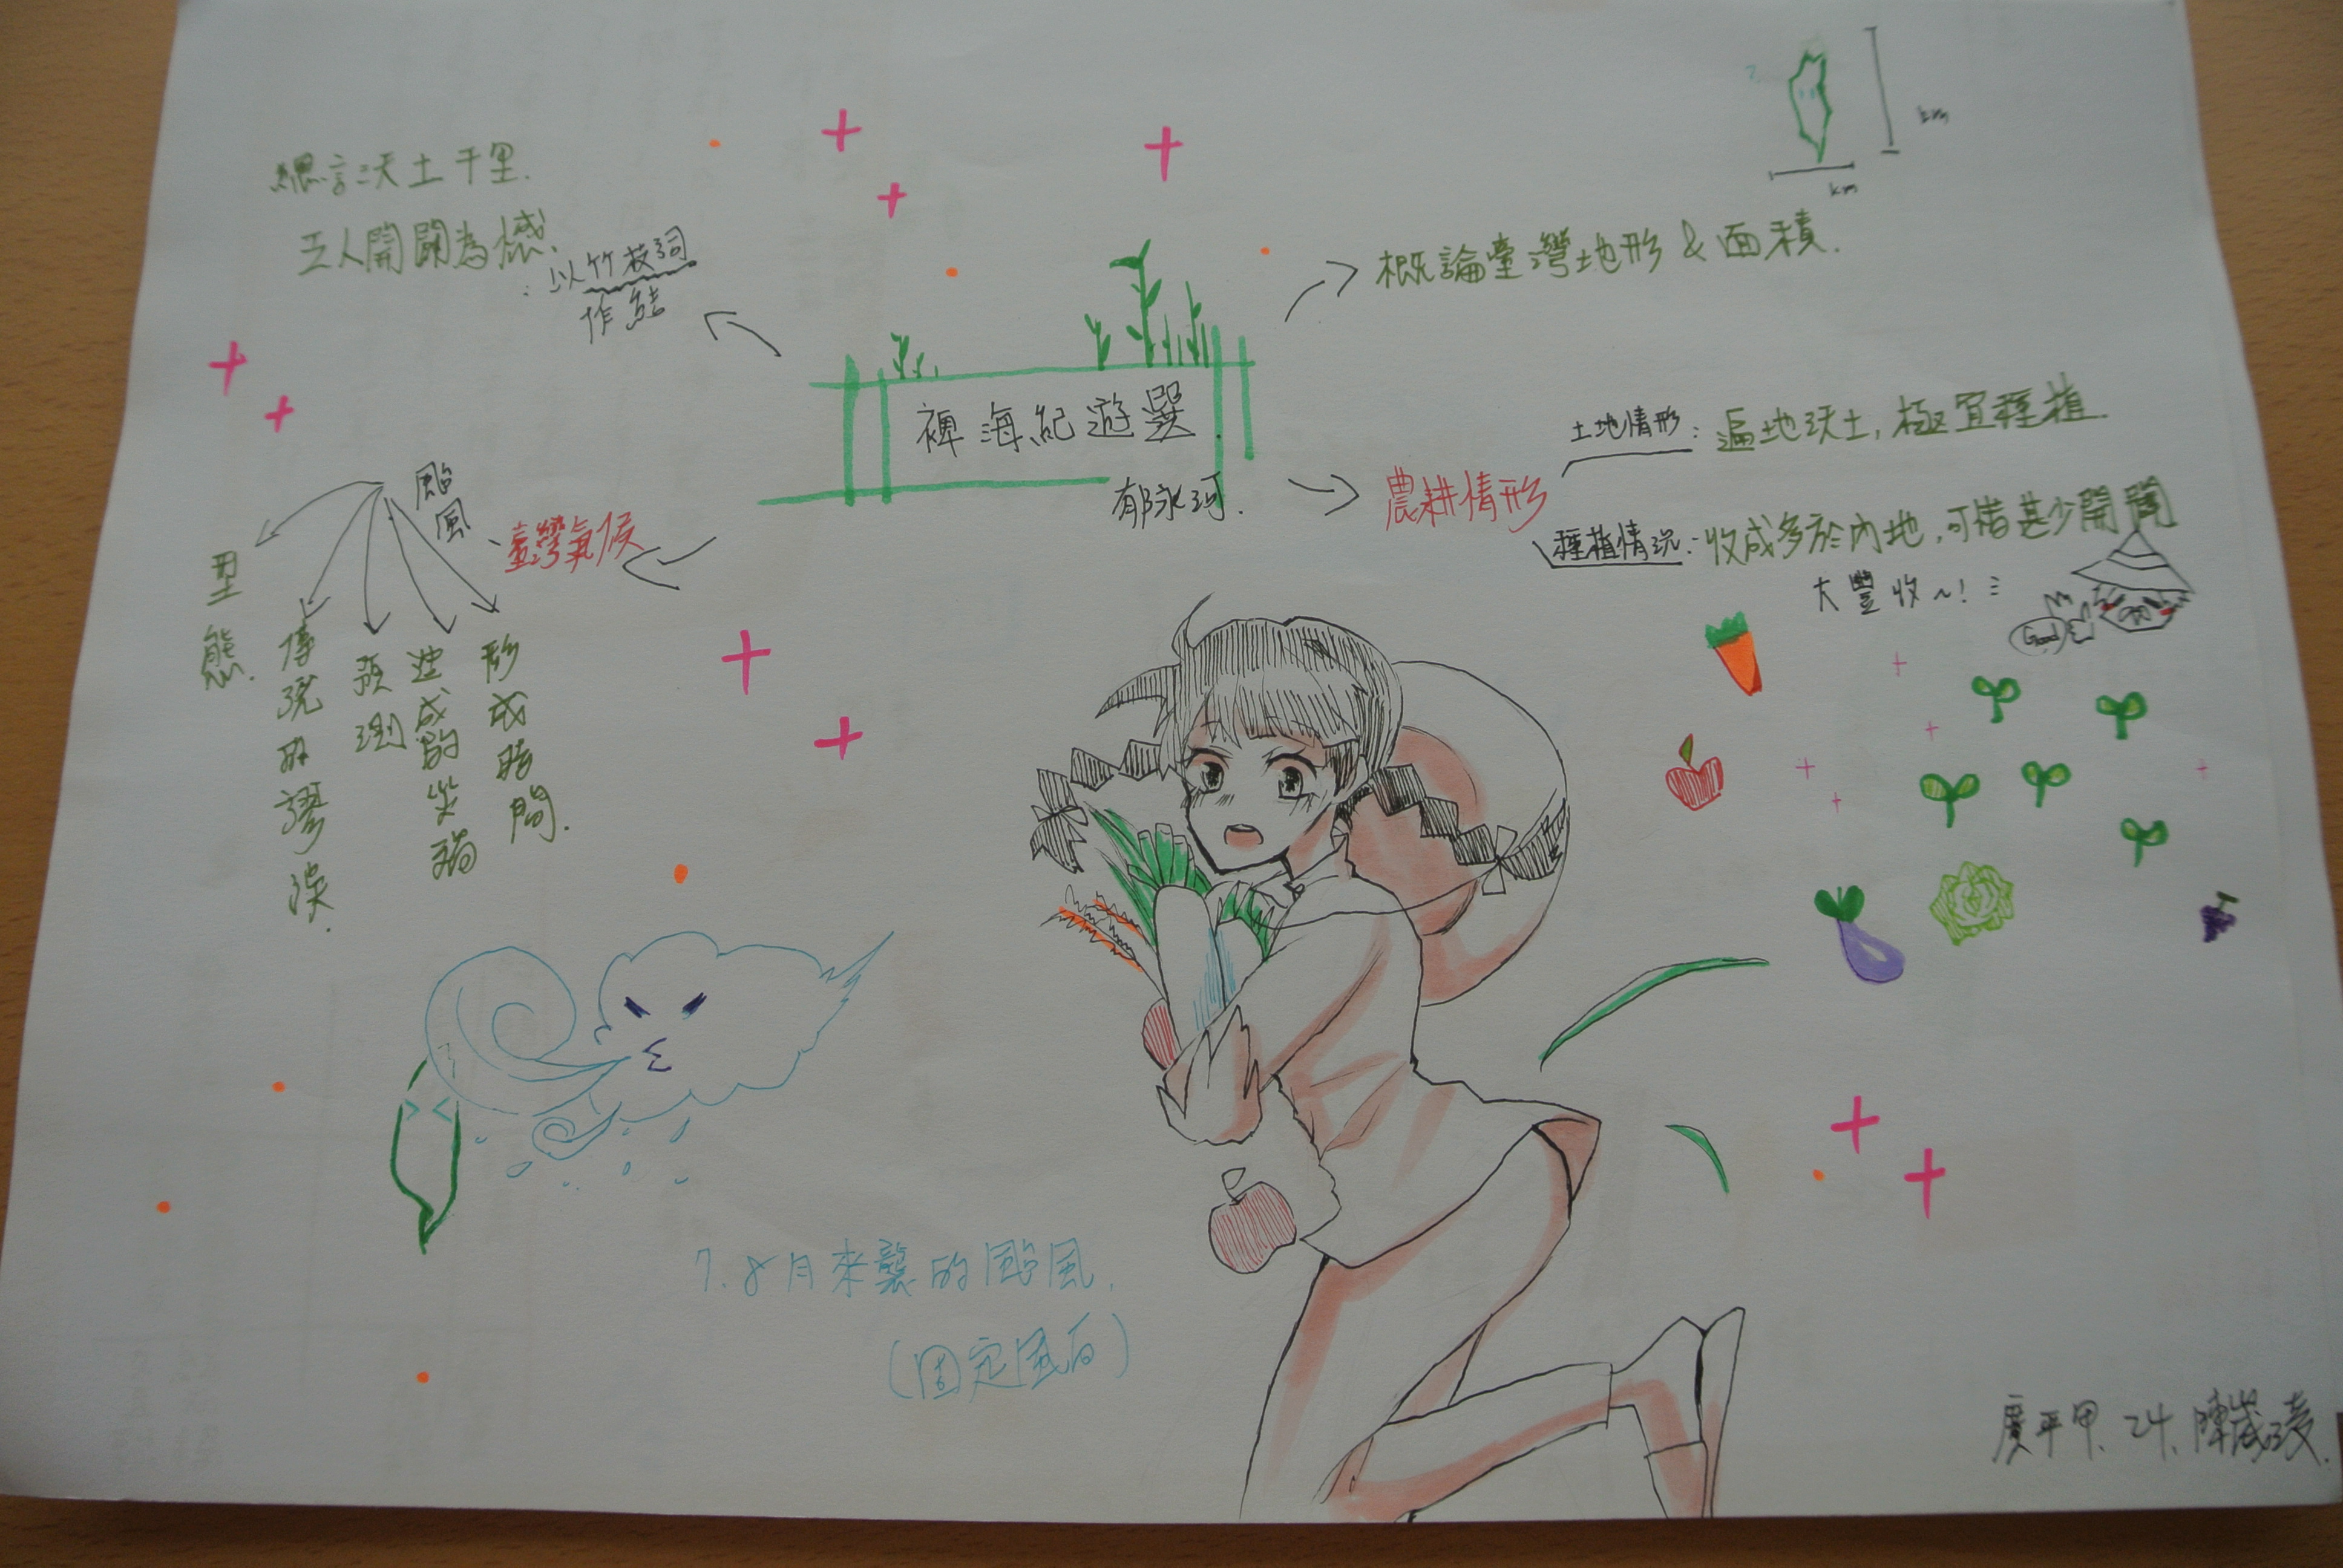 總言沃土千里.
工人開闢為憾.
:以竹枝詞
作結
km
km
概論臺灣地形&面積.
裨海紀遊選.
郁永河.
農耕情形
土地情形:遍地沃土,極宜種植.
種植情況:收成多於內地,可惜甚少開闢
大豐收~!
Good
臺灣氣候
颱風
型態.
傳說及謬誤.
預測
造成的災禍
形成時間.
7.8月來襲的颱風.
(固定風向)
慶平甲. 24.